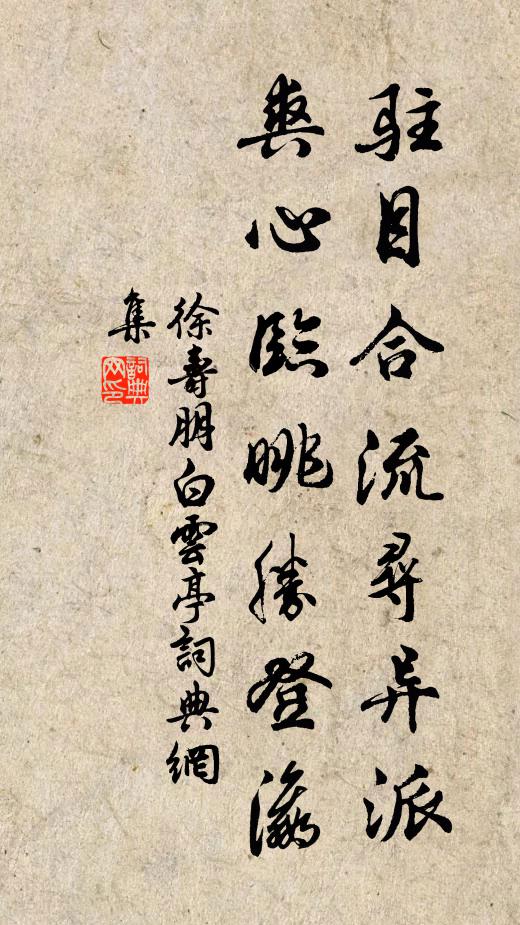 駐目合流尋异派
爽心臨眺勝登瀛
徐壽朋白雲亭詞典網
集
詞典網印